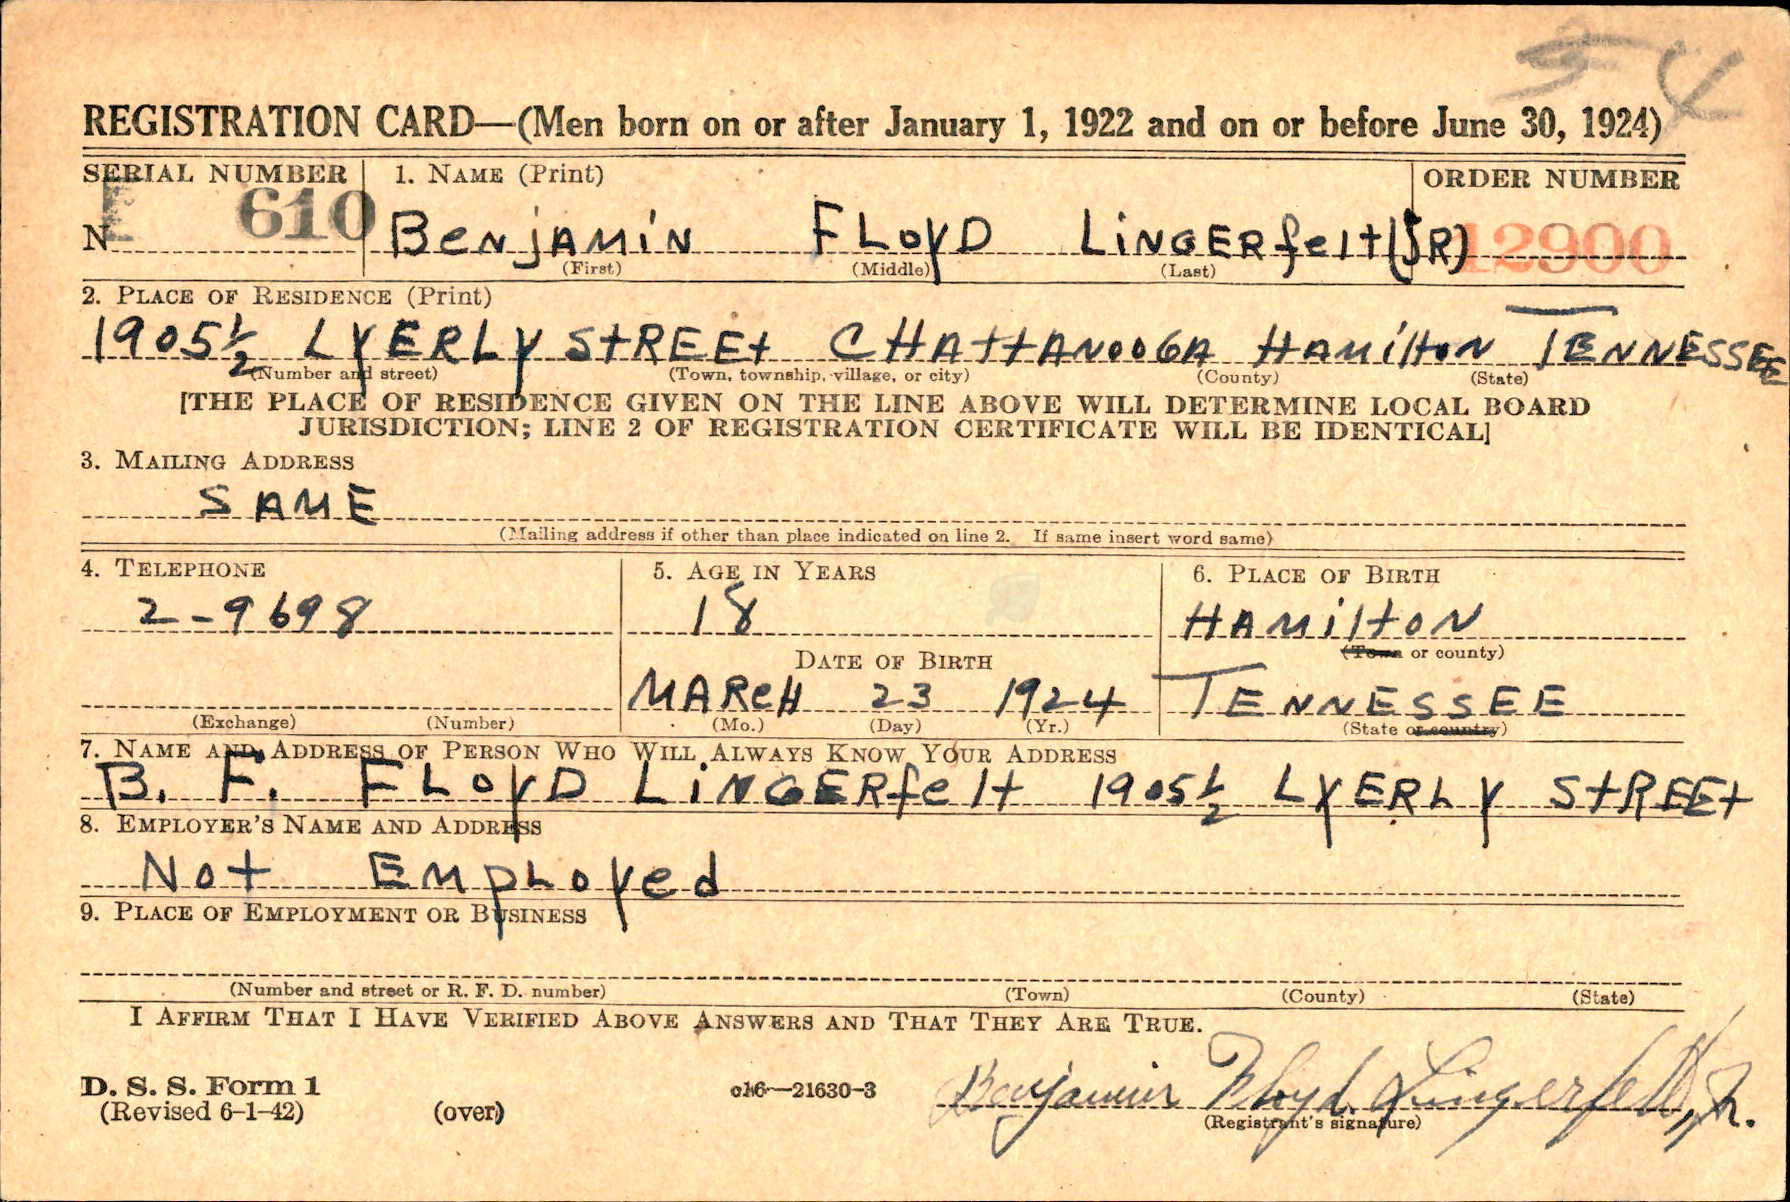 54
REGISTRATION CARD—(Men born on or after January 1, 1922 and on or before June 30, 1924)
SERIAL NUMBER 1. NAME (Print) ORDER NUMBER
N 610 BENJAMIN FLOYD LINGERfelt (JR) 12900
(First) (Middle) (Last)
2. PLACE OF RESIDENCE (Print)
1905½ LYERLY STREEt CHAttANOOGA HAMiltoN TENNESSEE
(Number and street) (Town, township, village, or city) (County) (State)
[THE PLACE OF RESIDENCE GIVEN ON THE LINE ABOVE WILL DETERMINE LOCAL BOARD
JURISDICTION; LINE 2 OF REGISTRATION CERTIFICATE WILL BE IDENTICAL]
3. MAILING ADDRESS
SAME
(Mailing address if other than place indicated on line 2. If same insert word same)
4. TELEPHONE 5. AGE IN YEARS 6. PLACE OF BIRTH
2-9698 18 HAMiltoN
(Town or county)
DATE OF BIRTH
MARCH 23 1924 TENNESSEE
(Exchange) (Number) (Mo.) (Day) (Yr.) (State or country)
7. NAME AND ADDRESS OF PERSON WHO WILL ALWAYS KNOW YOUR ADDRESS
B. F. FLOYD LiNGERfelt 1905½ LYERLY StREEt
8. EMPLOYER'S NAME AND ADDRESS
Not EMPLOYed
9. PLACE OF EMPLOYMENT OR BUSINESS
(Number and street or R. F. D. number) (Town) (County) (State)
I AFFIRM THAT I HAVE VERIFIED ABOVE ANSWERS AND THAT THEY ARE TRUE.
D. S. S. Form 1 c16—21630-3 Benjamin Floyd Lingerfelt, Jr.
(Revised 6-1-42) (over) (Registrant's signature)